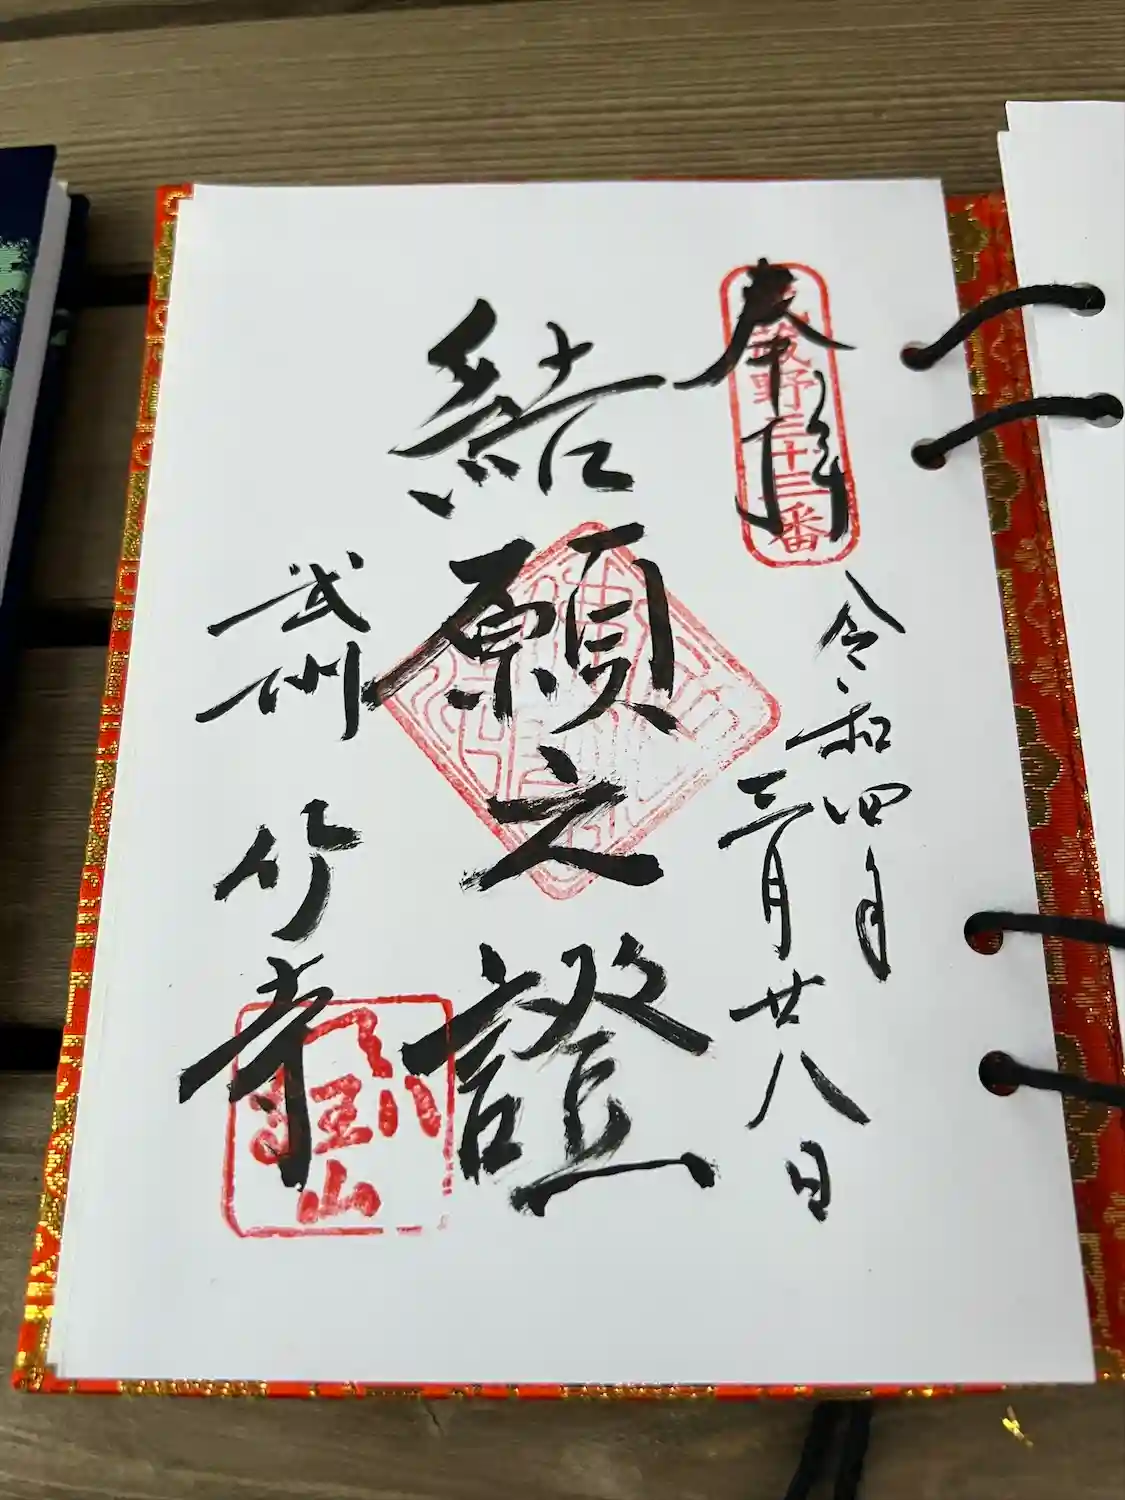 奉拝
武蔵野三十三番
令和四年
三月廿八日
結願之證
武州 竹寺
八王山